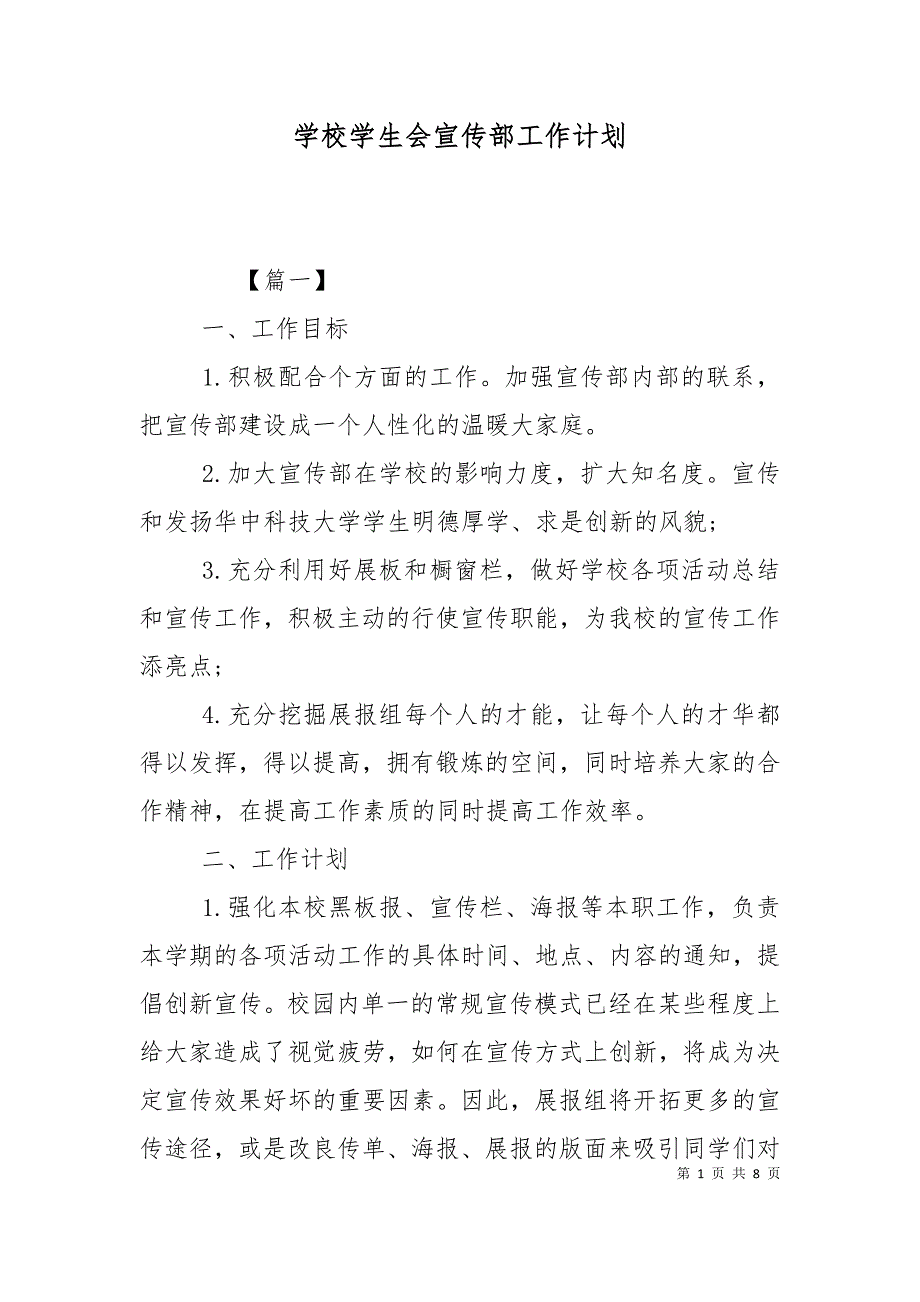 学校学生会宣传部工作计划
【篇一】
一、工作目标
1.积极配合个方面的工作。加强宣传部内部的联系，
把宣传部建设成一个人性化的温暖大家庭。
2.加大宣传部在学校的影响力度，扩大知名度。宣传
和发扬华中科技大学学生明德厚学、求是创新的风貌;
3.充分利用好展板和橱窗栏，做好学校各项活动总结
和宣传工作，积极主动的行使宣传职能，为我校的宣传工作
添亮点;
4.充分挖掘展报组每个人的才能，让每个人的才华都
得以发挥，得以提高，拥有锻炼的空间，同时培养大家的合
作精神，在提高工作素质的同时提高工作效率。
二、工作计划
1.强化本校黑板报、宣传栏、海报等本职工作，负责
本学期的各项活动工作的具体时间、地点、内容的通知，提
倡创新宣传。校园内单一的常规宣传模式已经在某些程度上
给大家造成了视觉疲劳，如何在宣传方式上创新，将成为决
定宣传效果好坏的重要因素。因此，展报组将开拓更多的宣
传途径，或是改良传单、海报、展报的版面来吸引同学们对
第 1 页 共 8 页